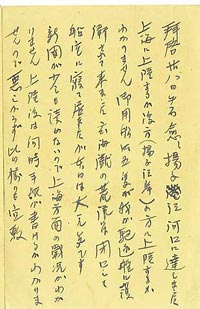 拝啓 廿八日午后愈揚子江河口に達しました
上海に上陸するか后方(揚子江岸)の方へ上陸するか
わかりません 御用船は五隻で我が駆逐艦が護
衛して来ました 玄海灘の荒浪には閉口して
船に寝て居ましたが今日は大元気です
新聞が少しも読めないので上海方面の戦況がわか
りません 上陸後は何時手紙が書けるかわかりま
せんので悪しからず